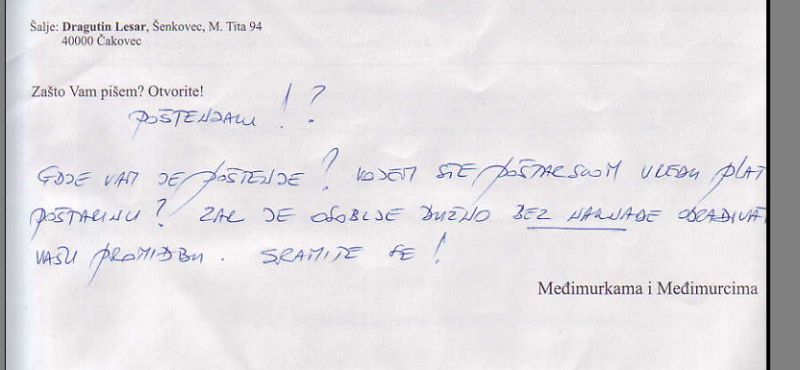 Šalje: Dragutin Lesar, Šenkovec, M. Tita 94
40000 Čakovec
Zašto Vam pišem? Otvorite!
POŠTENJAKU !?
GDJE VAM JE POŠTENJE? KOJEM STE POŠTARSKOM UREDU PLAT
POŠTARINU? ZAR JE OSOBLJE DUŽNO BEZ NAKNADE OBRAĐIVAT
VAŠU PROMIDŽBU. SRAMITE SE!
Međimurkama i Međimurcima